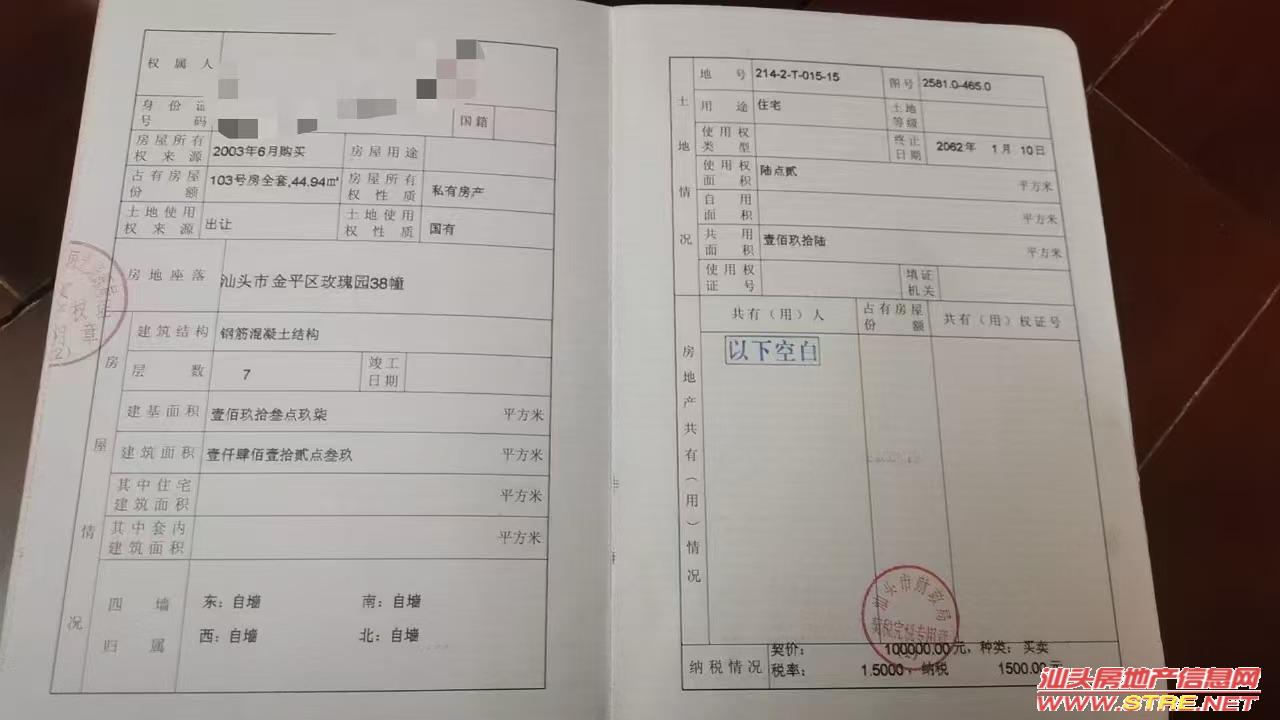 权属人
身份证号码
国籍
房屋所有权来源 2003年6月购买 房屋用途
占有房屋份额 103号房全套,44.94㎡ 房屋所有权性质 私有房产
土地使用权来源 出让 土地使用权性质 国有
房地座落 汕头市金平区玫瑰园38幢
房屋情况
建筑结构 钢筋混凝土结构
层数 7 竣工日期
建基面积 壹佰玖拾叁点玖柒 平方米
建筑面积 壹仟肆佰壹拾贰点叁玖 平方米
其中住宅建筑面积 平方米
其中套内建筑面积 平方米
四墙归属
东：自墙 南：自墙
西：自墙 北：自墙
权证
章
土地情况
地号 214-2-T-015-15 图号 2581.0-465.0
用途 住宅 土地等级
使用权类型 终止日期 2062年 1月 10日
使用权面积 陆点贰 平方米
自用面积 平方米
共用面积 壹佰玖拾陆 平方米
使用权证号 填证机关
房地产共有（用）情况
共有（用）人 占有房屋份额 共有（用）权证号
以下空白
汕头市财政局
契税完税专用章
纳税情况
契价： 100000.00元，种类：买卖
税率： 1.5000 纳税 1500.00元
汕头房地产信息网
WWW.STRE.NET